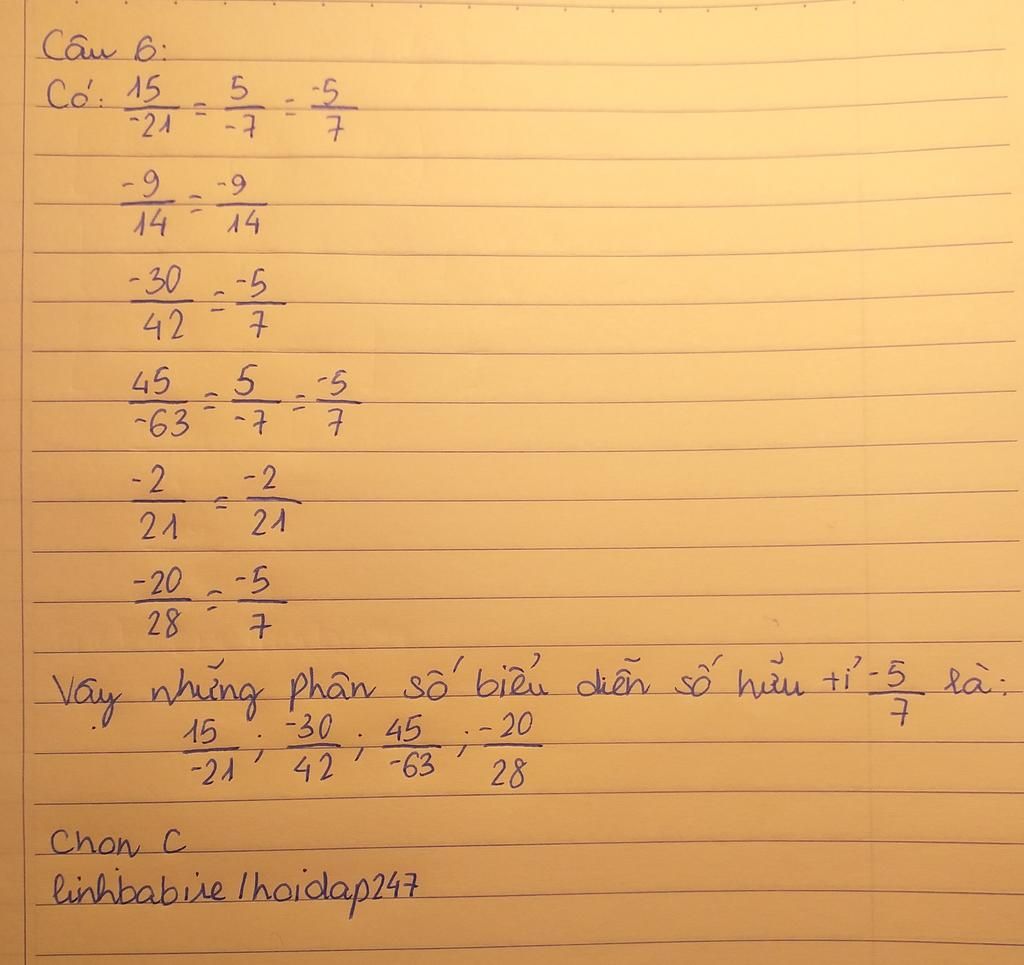 Câu 6:
Có: 15/-21 = 5/-7 = -5/7
-9/14 = -9/14
-30/42 = -5/7
45/-63 = 5/-7 = -5/7
-2/21 = -2/21
-20/28 = -5/7
Vậy những phân số biểu diễn số hữu tỉ -5/7 là:
15/-21 ; -30/42 ; 45/-63 ; -20/28
Chọn C
linhbabie/hoidap247